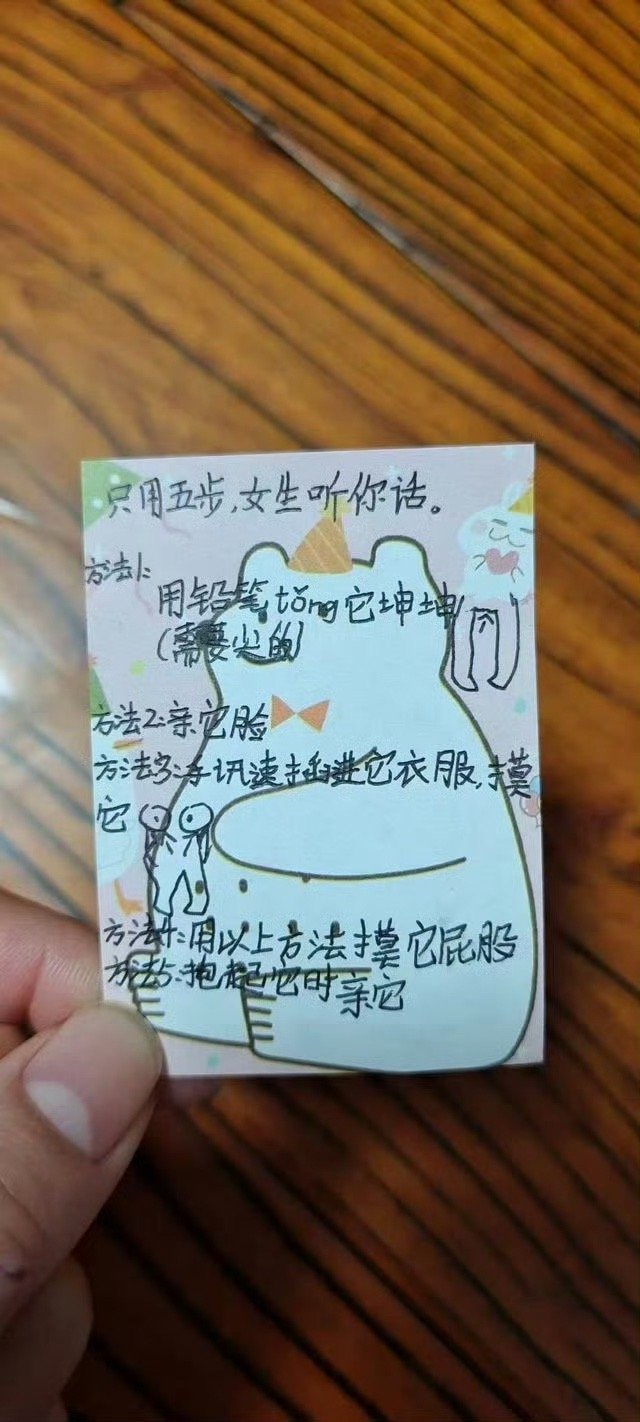 只用五步,女生听你话。
方法1:
用铅笔tǒng它坤坤
(需要尖的)
方法2:亲它脸
方法3:手讯速插进它衣服,摸
它
方法4:用以上方法摸它屁股
方法5:抱起它时亲它